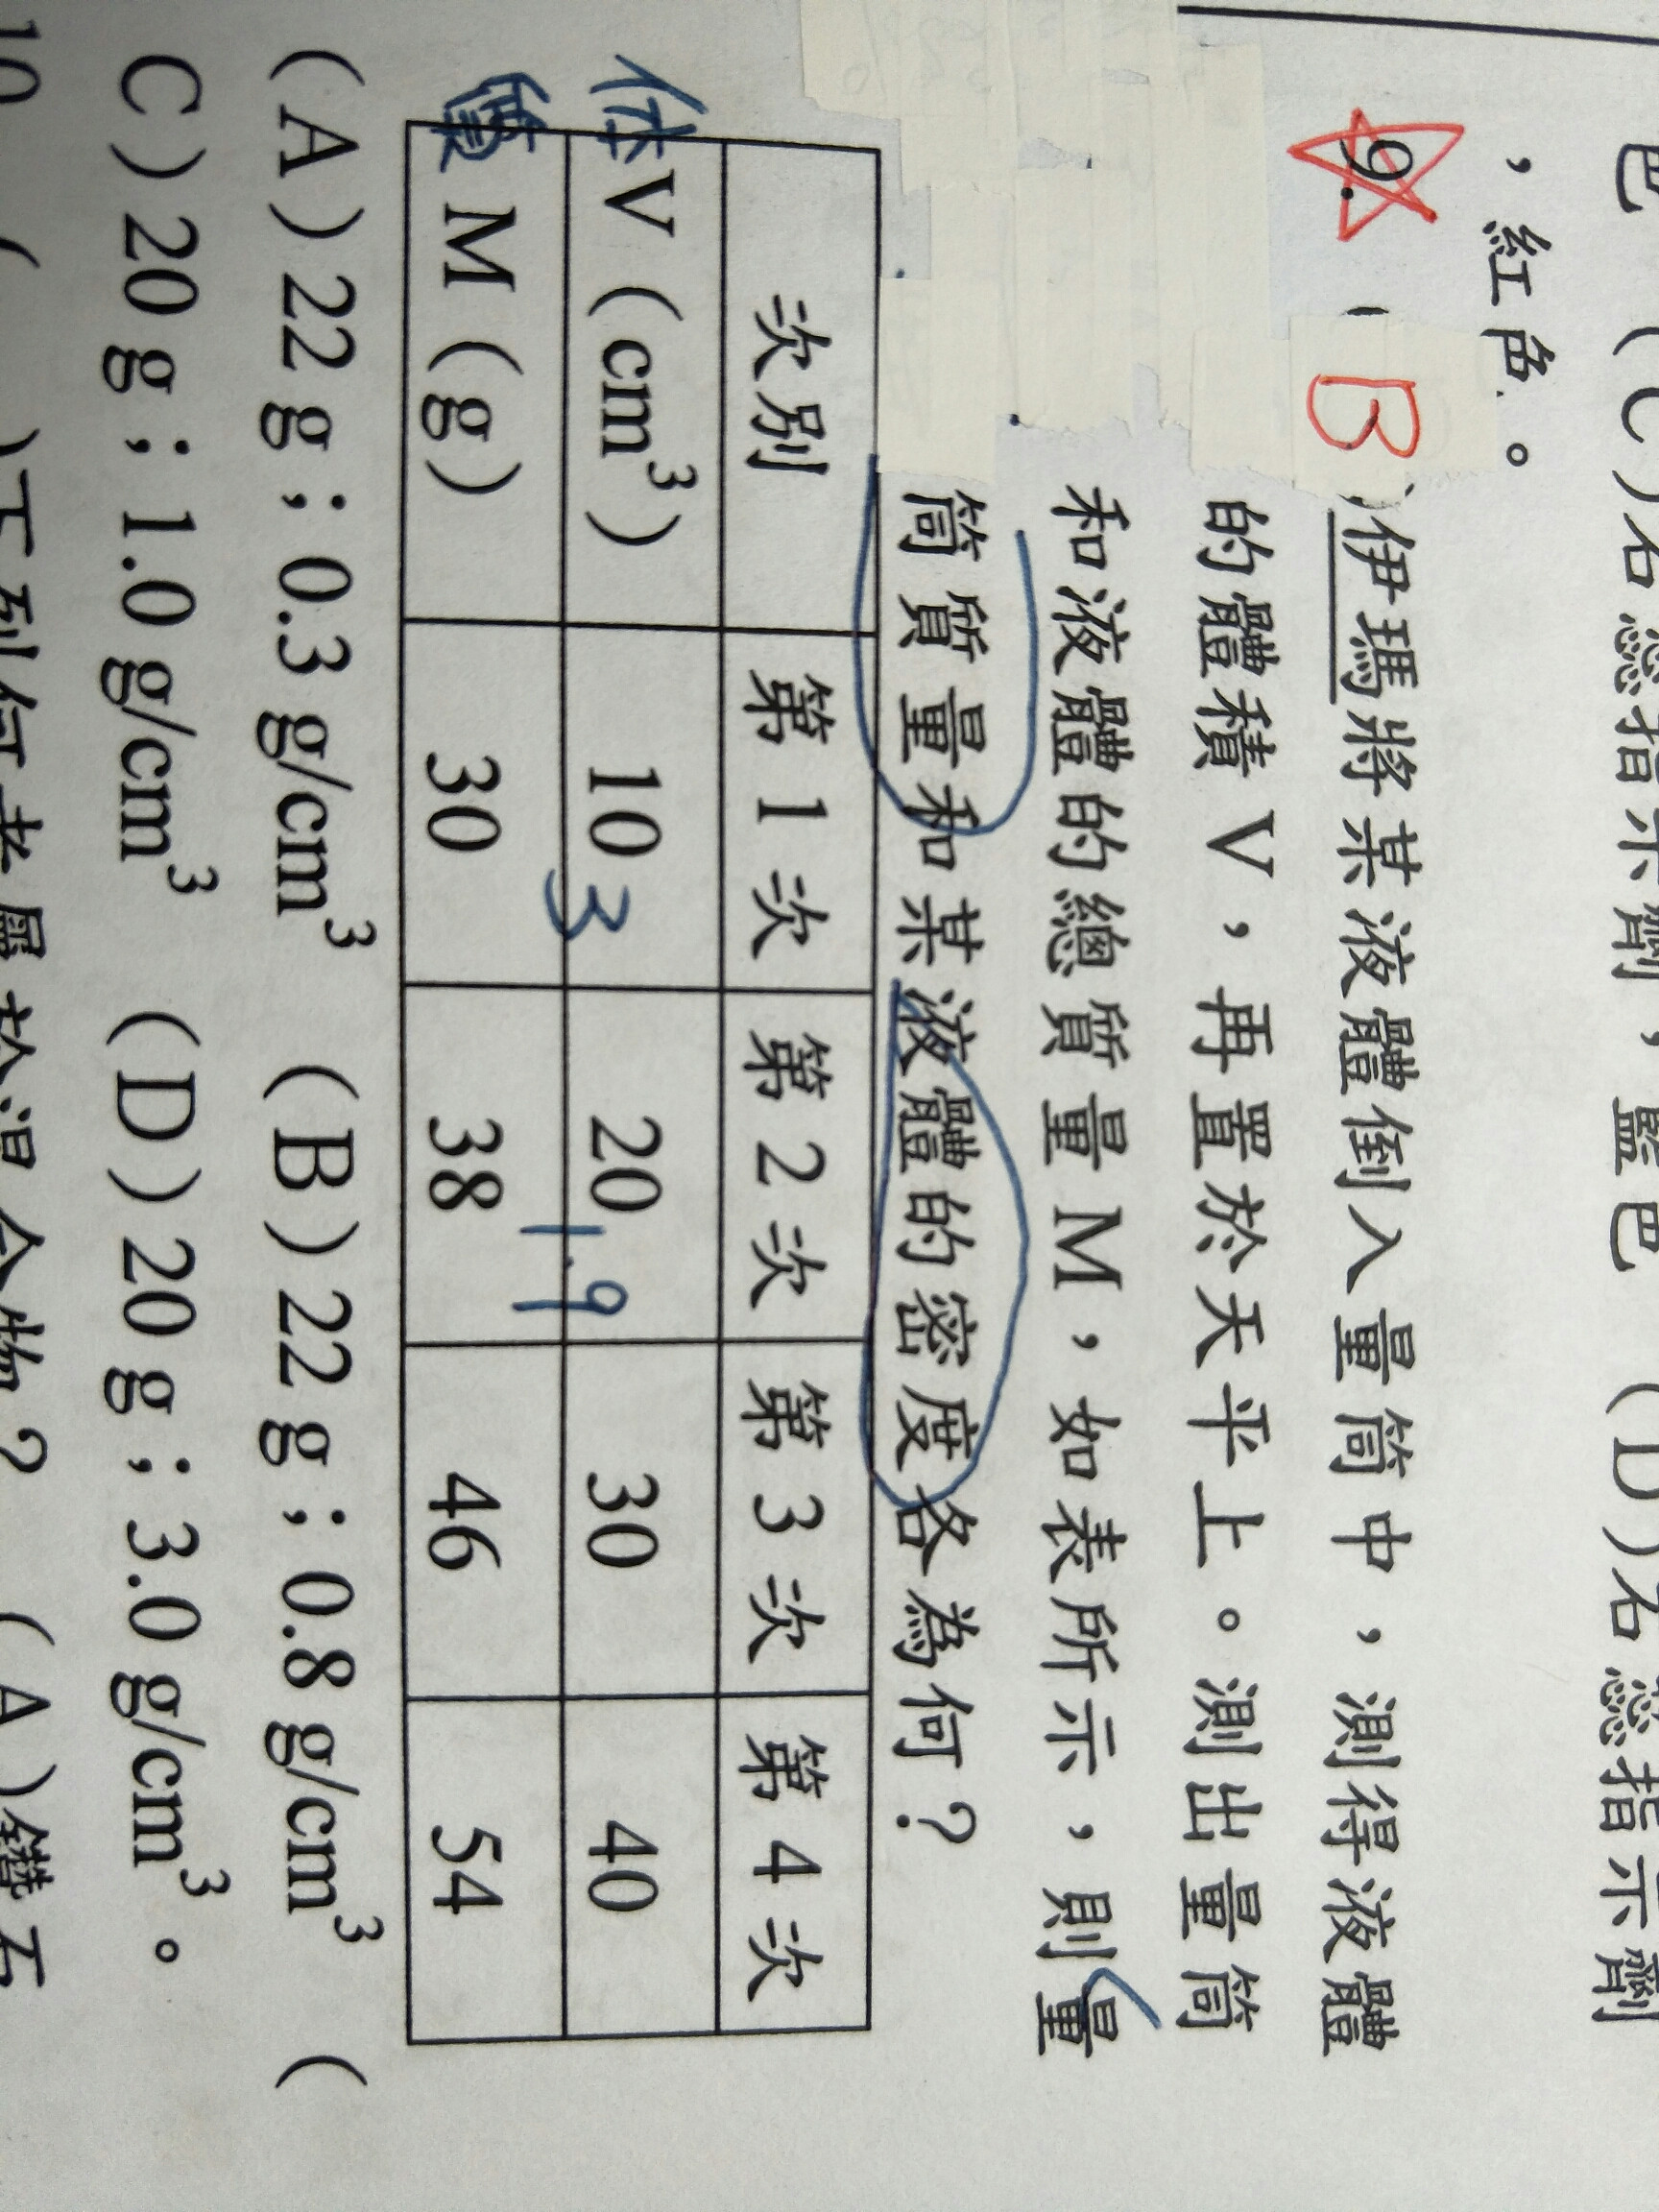 色 (C)石蕊指示劑,藍色 (D)石蕊指示劑
,紅色。
9. ( B )伊瑪將某液體倒入量筒中,測得液體
的體積V,再置於天平上。測出量筒
和液體的總質量M,如表所示,則量
筒質量和某液體的密度各為何?
次別 第1次 第2次 第3次 第4次
体 V(cm³) 10 20 30 40
3 1.9
質 M(g) 30 38 46 54
(A)22 g;0.3 g/cm³ (B)22 g;0.8 g/cm³ (
C)20 g;1.0 g/cm³ (D)20 g;3.0 g/cm³。
10. ( )下列何者屬於混合物? (A)鑽石